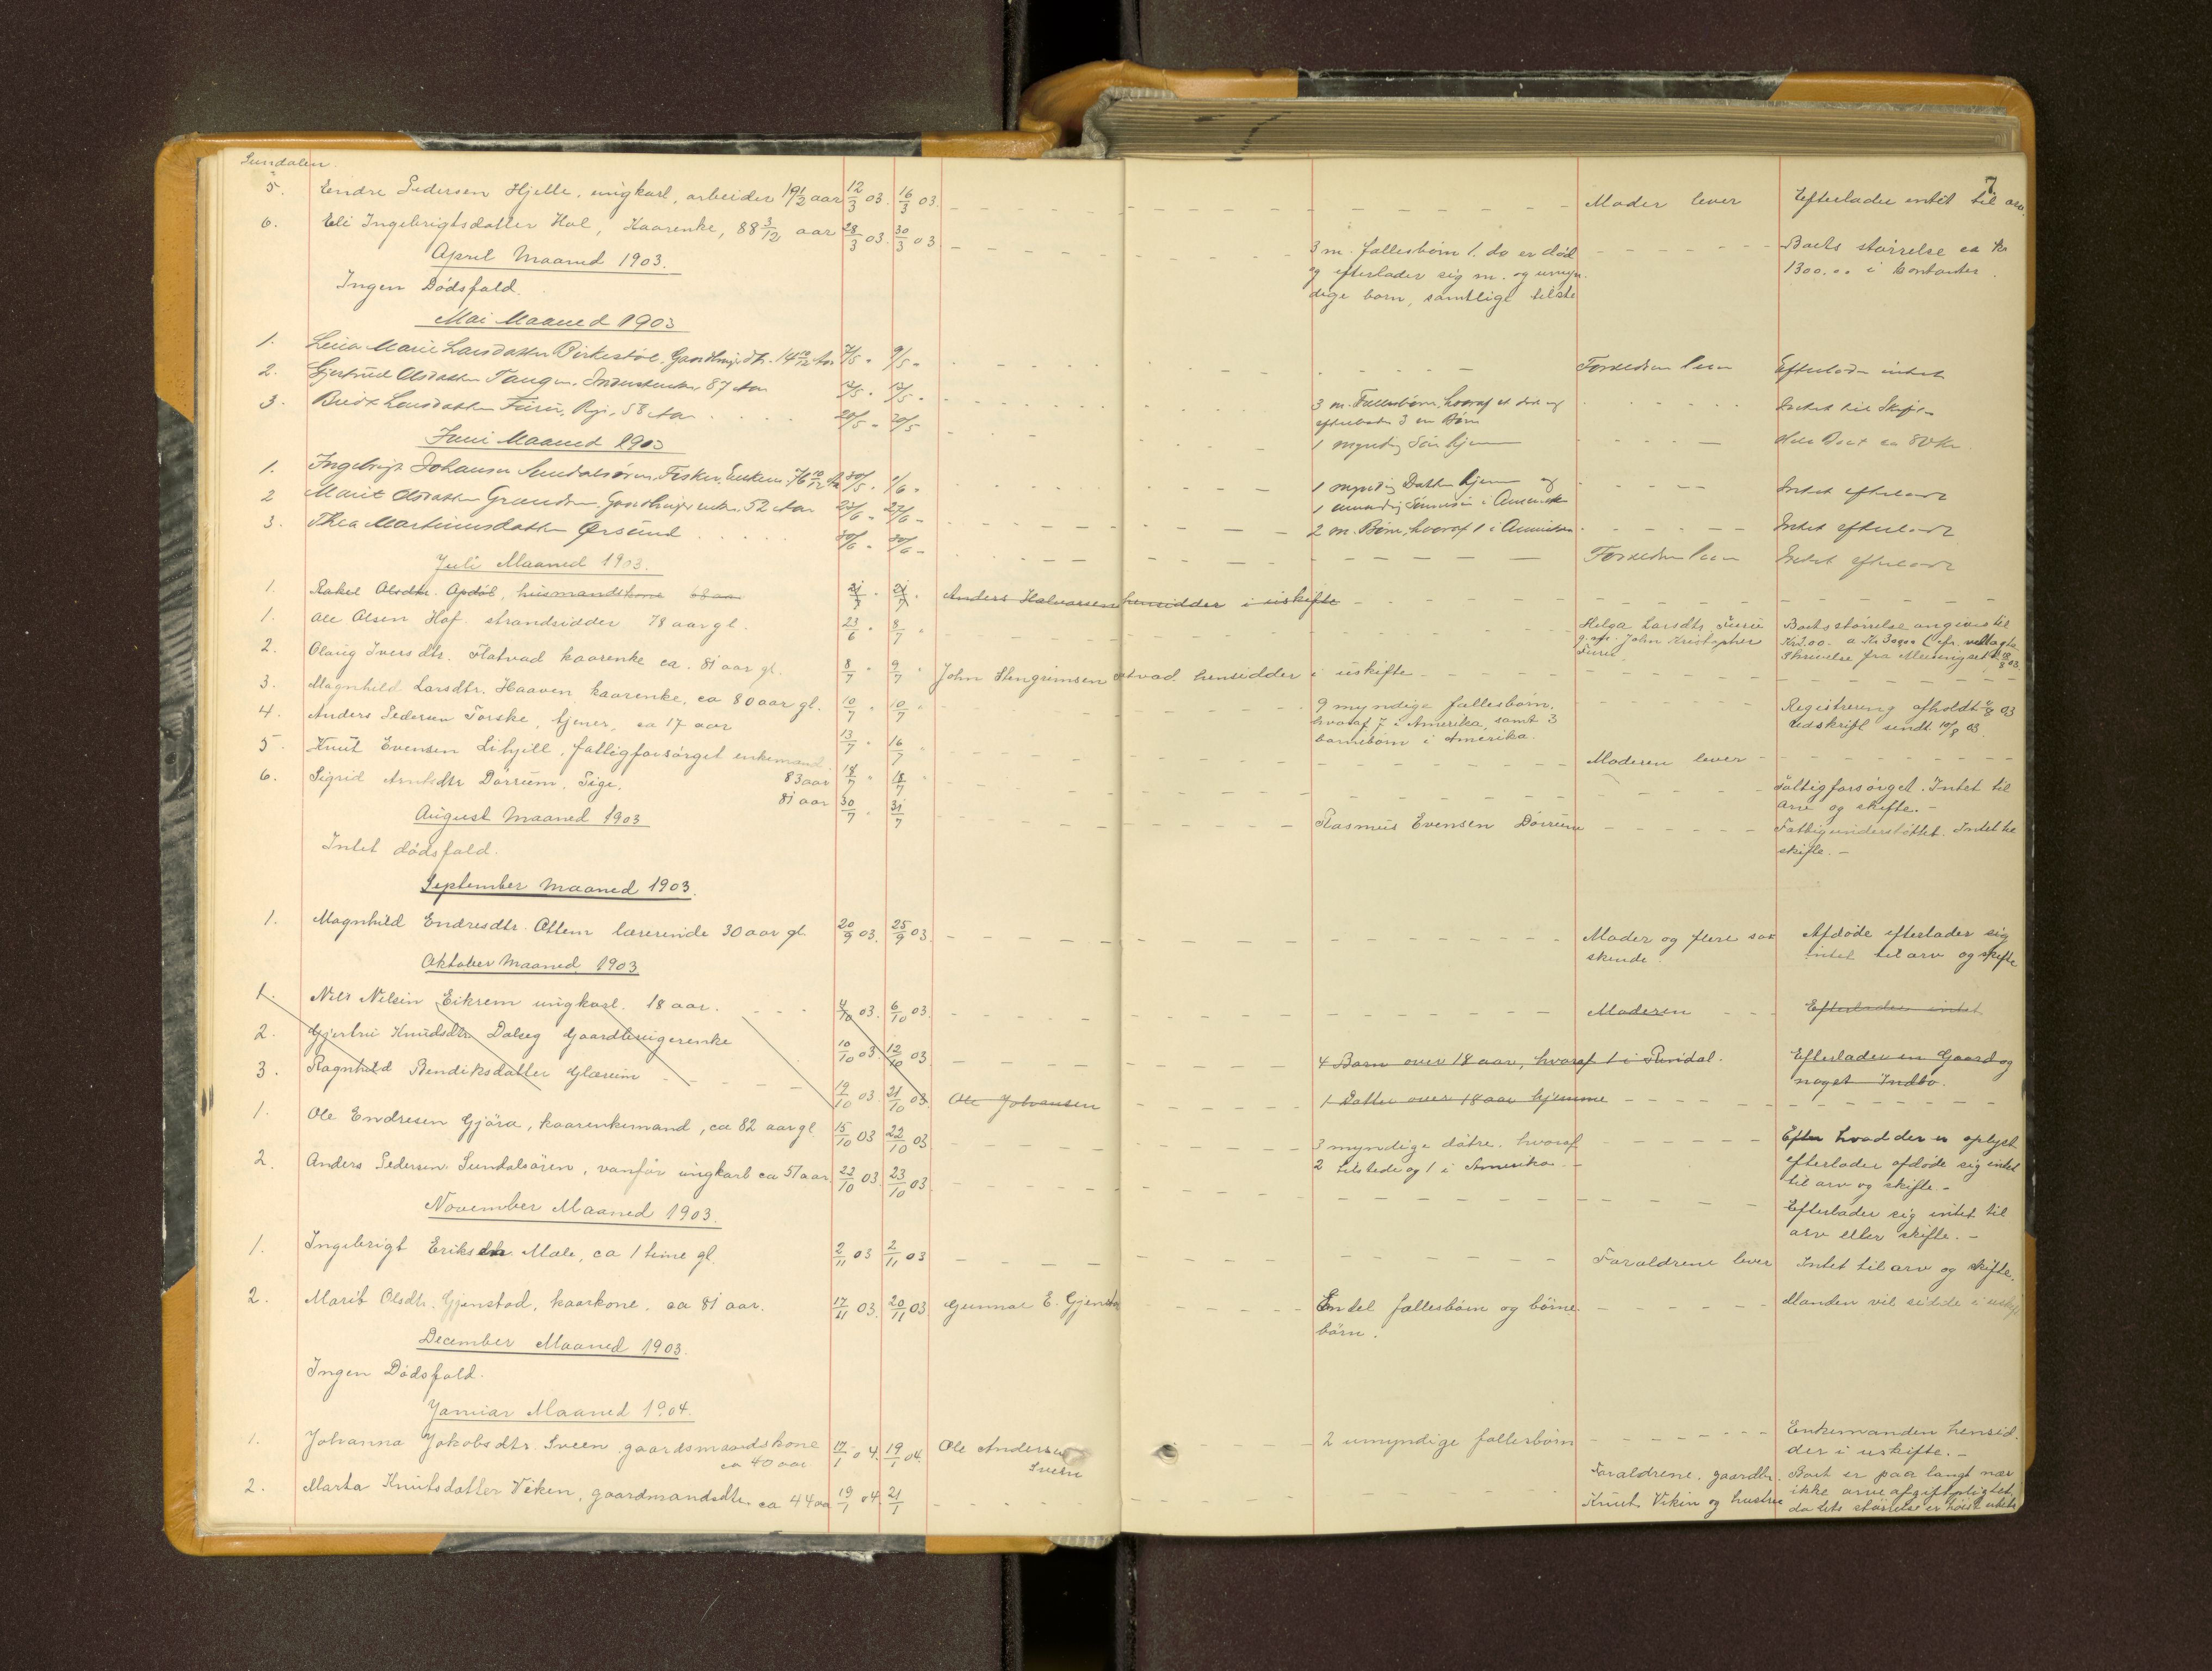 Sundalen.
7
5. Endre Pedersen Hjelle, ungkarl, arbeider 19 1/2 aar 12/3 03. 16/3 03. Moder lever Efterlader intet til arv.
6. Eli Ingebrigtsdatter Hol, Kaarenke, 88 3/12 aar 28/3 03. 30/3 03 3 m. fællesbørn 1. do er død Boets størrelse ca kr
og efterlader sig m. og umyn- 1300.00 i kontanter.
dige børn, samtlige tilstede
April Maaned 1903.
Ingen Dødsfald.
Mai Maaned 1903
1. Marie Larsdatter 14 10/12 Aar 7/5 9/5 Forældren Efterlader intet
2. Gjertrud Olsdatter Tangen 87 Aar 3 m. Fællesbørn, hvoraf et død og Intet til Skifte
efterladt 3 m Børn
3. Larsdatter Furu, 58 Aar 20/5 20/5 1 myndig Søn hjemme Hele Boet ca 80 Kr.
Juni Maaned 1903
1. Ingebrigt Johansen Sundalsøren, Fisker, Enkem. 76 10/12 Aar 30/5 1/6 1 myndig Datter hjemme og Intet efterladt
1 myndig Søn i Amerika
2 Marit Olsdatter 52 Aar 2 m. Børn, hvoraf 1 i Amerika Intet efterladt
3. Thea Martinusdatter Ørsund 30/6 30/6 Forældren Intet efterladt
Juli Maaned 1903.
1. Rakel Olsdtr. Opdøl, husmandskone 68 aar 21/7 21/7 Anders Halvorsen hensidder i uskifte
1. Ole Olsen Hof. strandsidder 78 aar gl. 23/6 8/7 Helga Larsdtr. Furu Boets størrelse angives til
g. m. John Kristopher Kr 200.- a Kr 300.00 (cfr. vedlagte
Furu Skrivelse fra
2. Olaug Iversdtr. Flatvad kaarenke ca. 81 aar gl. 8/7 9/7 John Stengrimsen Flatvad hensidder i uskifte
3. Magnhild Larsdtr. Haaven kaarenke, ca 80 aar gl. 10/7 10/7 9 myndige fællesbørn, Registrering afholdt 03
hvoraf 7 i Amerika, samt 3 Udskrift sendt 10/8 03.
barnebørn i Amerika.
4. Anders Pedersen Torske, tjener, ca 17 aar 13/7 16/7 Moderen lever
5. Knut Evensen Lihjell, fattigforsørget enkemand 83 aar 18/7 18/7 Fattigforsørget. Intet til
arv og skifte.-
6. Sigrid Arntsdtr Dørrum, Pige, 81 aar 30/7 31/7 Rasmus Evensen Dørrum Fattigunderstøttet. Intet til
skifte.-
August Maaned 1903
Intet dødsfald.
September Maaned 1903.
1. Magnhild Endresdtr. Ottem lærerinde 30 aar gl. 20/9 03. 25/9 03. Moder og flere søs- Afdøde efterlader sig
kende. intet til arv og skifte
Oktober Maaned 1903
1. Nils Nilsen Eikrem ungkarl. 18 aar. 4/10 03. 6/10 03. Moderen Efterlader intet
2. Gjertru Knudsdtr Dalseg Gaardbrugerenke 10/10 03. 12/10 03. 4 Børn over 18 aar, hvoraf 1 i Sundal. Efterlader en Gaard og
noget Indbo.
3. Ragnhild Bendiksdatter Glærum 19/10 03. 21/10 03. Ole Johansen 1 Datter over 18 aar hjemme
1. Ole Endresen Gjøra, kaarenkemand, ca 82 aar gl. 15/10 03 22/10 03. 3 myndige døtre. hvoraf Efter hvad der er oplyst
2 tilstede og 1 i Amerika.- efterlader afdøde sig intet
til arv og skifte.-
2. Anders Pedersen Sundalsøren, vanfør ungkarl ca 57 aar 22/10 03. 23/10 03. Efterlader sig intet til
arv eller skifte.-
November Maaned 1903.
1. Ingebrigt Eriksen Mæle, ca 1 time gl. 2/11 03 2/11 03 Forældrene lever Intet til arv og skifte.
2. Marit Olsdtr. Gjønstad, kaarkone, ca 81 aar. 17/11 03. 20/11 03. Gunnar E. Gjønstad En del fællesbørn og børne- Manden vil sidde i uskifte
børn.
December Maaned 1903.
Ingen Dødsfald.
Januar Maaned 1904.
1. Johanna Jakobsdtr. Sveen gaardsmandskone 17/1 04. 19/1 04. Ole Andersen 2 umyndige fællesbørn Enkemanden hensid-
ca 40 aar. Sveen der i uskifte.-
2. Marta Knutsdatter Viken, gaardmandsdtr. ca 44 aar 19/1 04. 21/1 Forældrene, gaardbr. Boet er paa langt nær
Knut Viken og hustru ikke arveafgiftspligtigt,
da dets størrelse er høist ubety